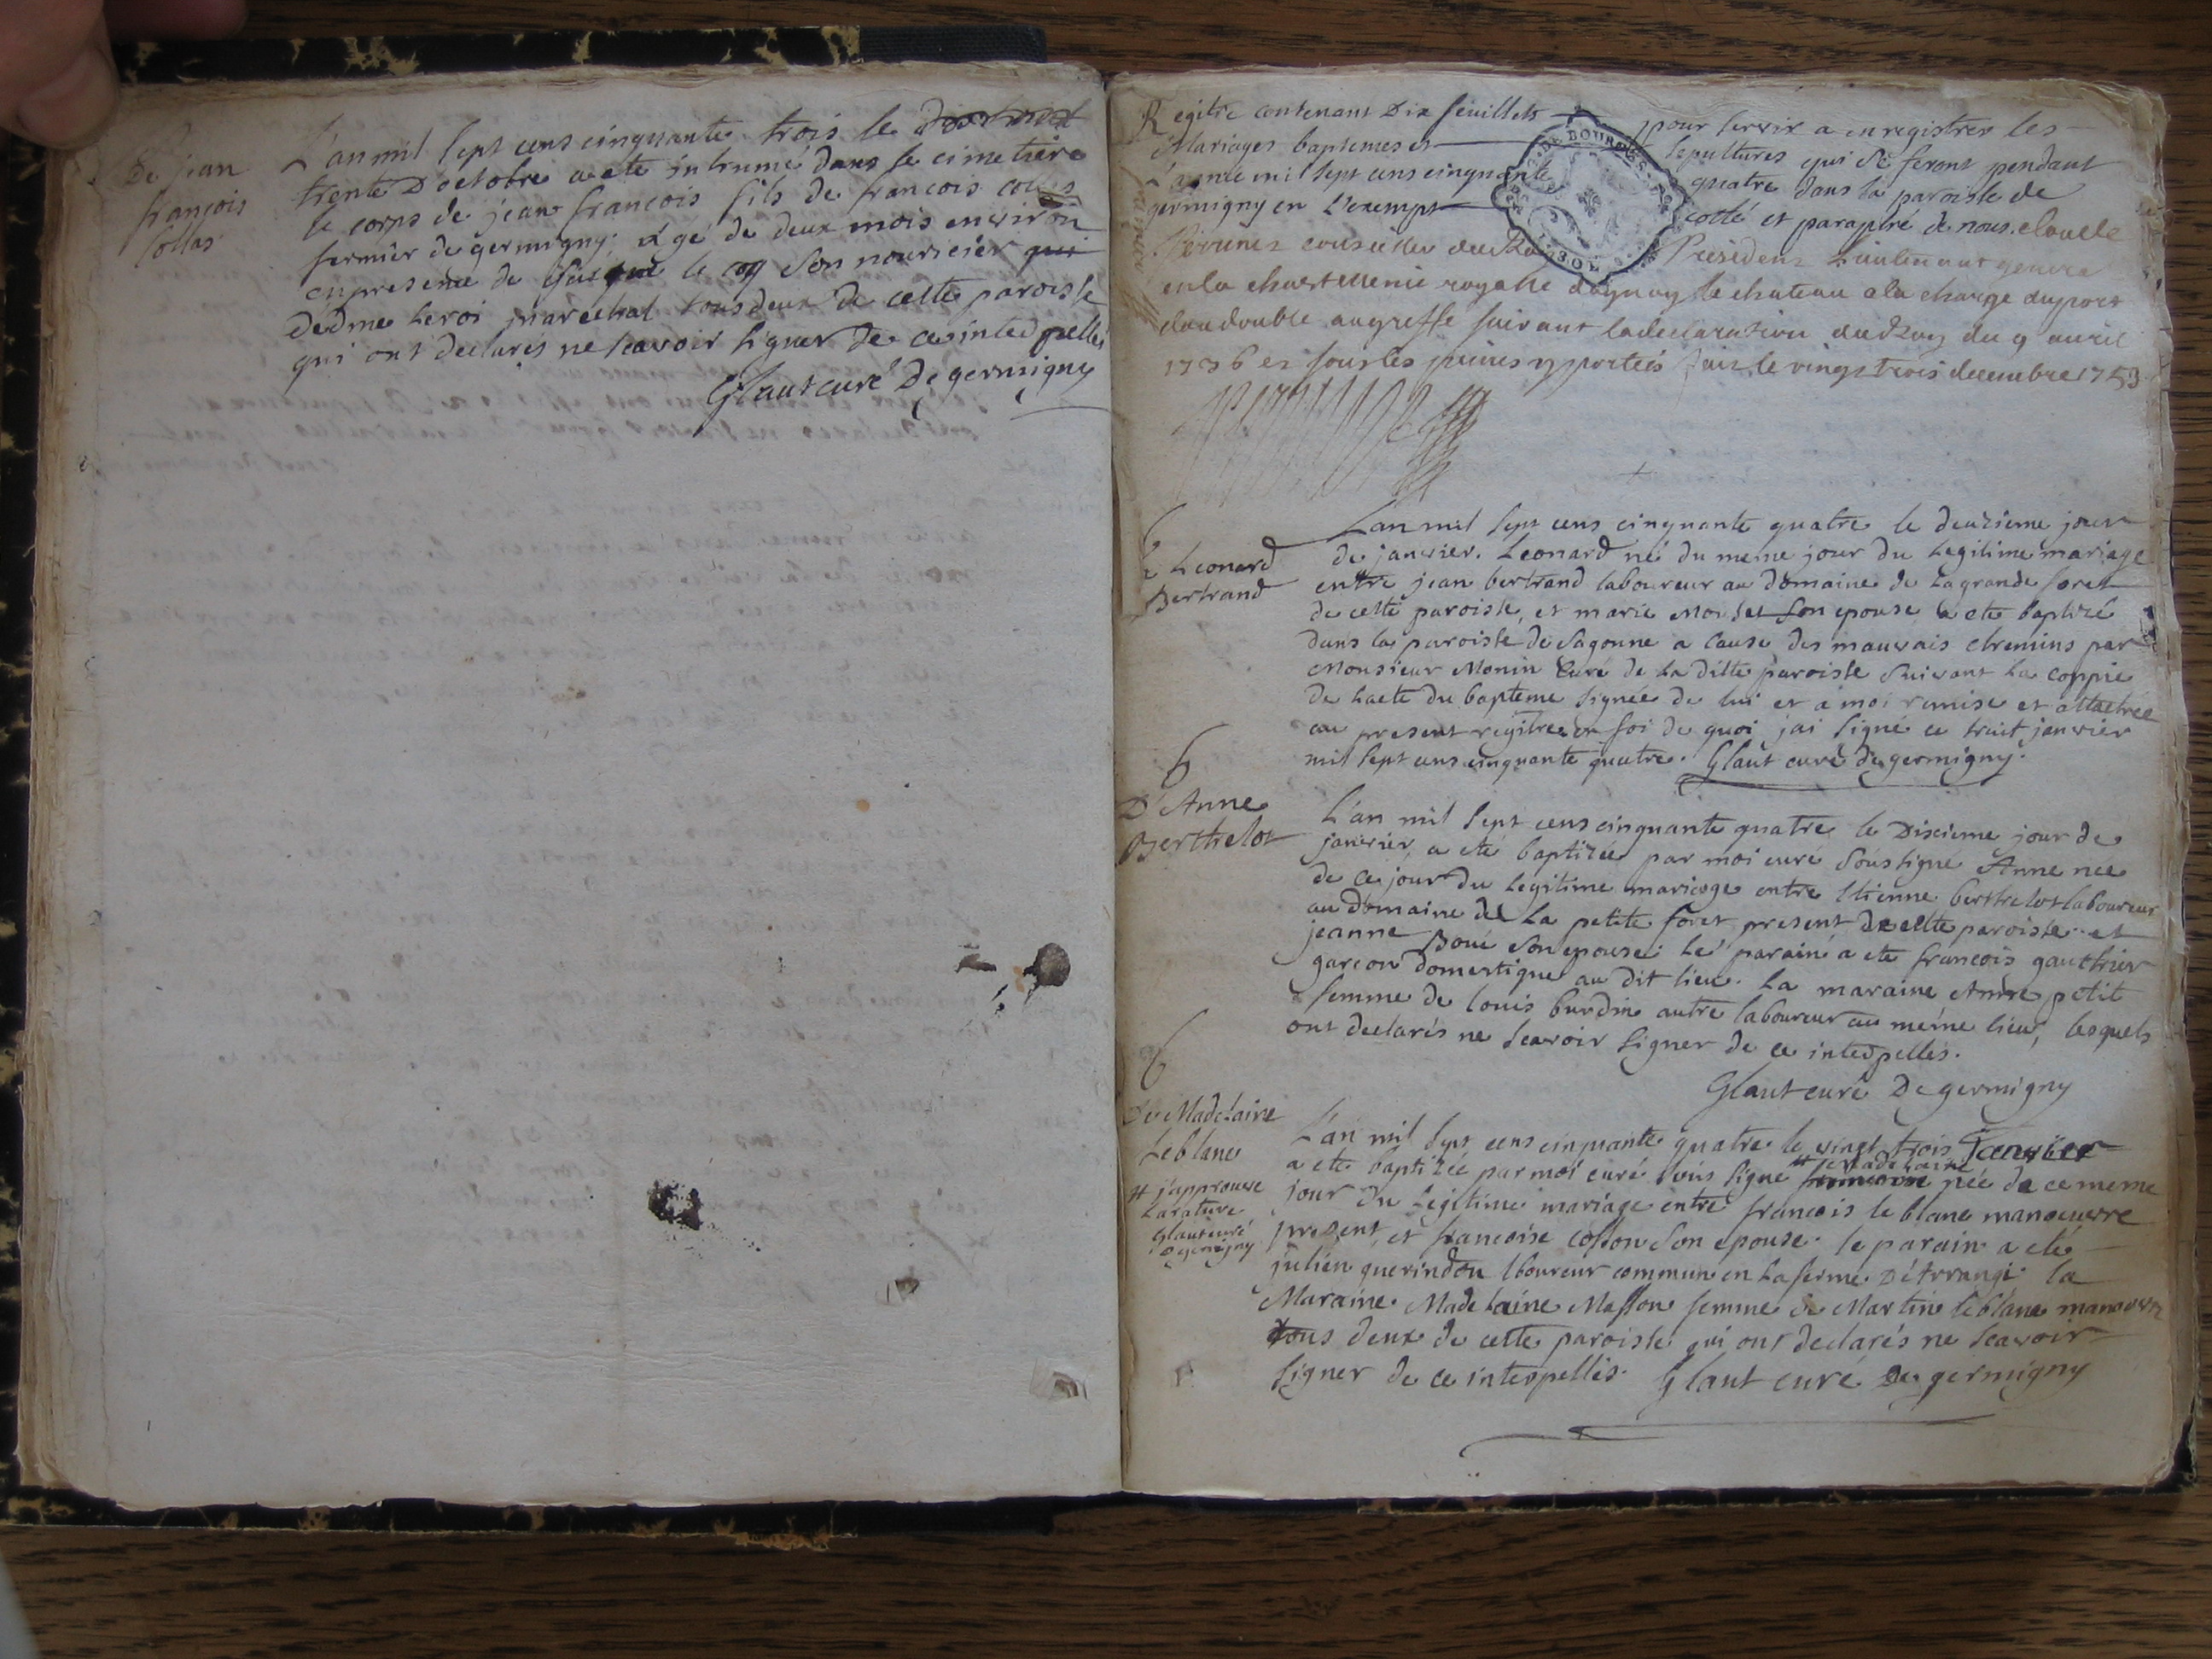 De jean
françois
Collas
L'an mil sept cens cinquante trois le
trente D'octobre a ete inhumé dans le cimetiere
le corps de jean francois fils de francois
fermier de germigny agé de deux mois environ
en presence de le coq son nouricier qui
dedme Leroi marechal tous deux de cette paroisse
qui ont declarés ne scavoir signer de ce interpellés
Glaut curé De germigny
Regitre contenant Dix feuillets pour servir a enregistrer les
Mariages baptemes et sepultures qui se feront pendant
L'année mil sept cens cinquante quatre dans la paroisse de
germigny en L'exempt cotté et paraphé de nous claude
conseiller du Roy President Lieutenant general
en la chastellenie royalle daynay le chateau a la charge duport
dudouble augreffe suivant la declaration du Roy du 9 avril
1736 et sous les peines y portées fait le vingt trois decembre 1753
B
de Leonard
Bertrand
L'an mil sept cens cinquante quatre le deuzieme jour
de janvier. Leonard né du meme jour du Legitime mariage
entre jean bertrand laboureur au domaine de la grande foret
de cette paroisse, et marie son epouse a ete baptizé
dans la paroisse de Sagonne a cause des mauvais chemins par
Monsieur Monin Curé de La ditte paroisse suivant La coppie
de L'acte du bapteme signée de lui et a moi remise et attachée
au present regitre en foi de quoi jai signé ce huit janvier
mil sept cens cinquante quatre. Glaut curé de germigny.
B
D'Anne
Berthelot
L'an mil sept cens cinquante quatre le Dixieme jour de
janvier a eté baptizée par moi curé soussigné Anne née
de ce jour du Legitime mariage entre Etienne berthelot laboureur
au domaine de La petite foret present de cette paroisse et
jeanne Boué son epouse. Le parain a ete francois gauthier
garcon domestique au dit lieu. La maraine Anne petit
femme de louis burdin autre laboureur au méme lieu, lesquels
ont declarés ne scavoir signer de ce interpellés.
Glaut curé De germigny
B
De Madelaine
Leblanc
# j'approuve
La rature
Glaut curé
De germigny
L'an mil sept cens cinquante quatre le vingt trois Janvier
# Madelaine
a ete baptizée par moi curé sous signé née de ce meme
jour du Legitime mariage entre francois le blanc manoeuvre
present, et francoise cosson son epouse. le parain a eté
julien guerindon lboureur commun en La ferme D'Arrangi la
Maraine. Madelaine Masson femme de Martin leblanc manoeuvre
tous deux de cette paroisse qui ont declarés ne scavoir
signer de ce interpellés. Glaut curé De germigny